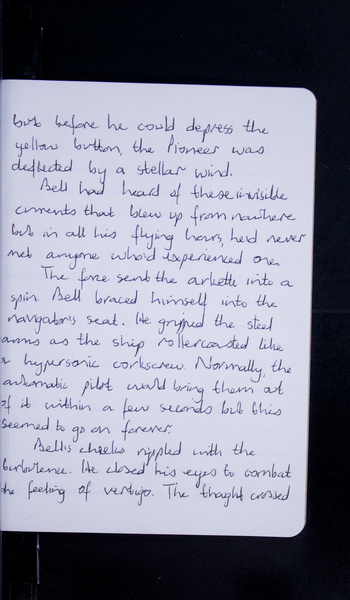 but before he could depress the
yellow button, the Pioneer was
deflected by a stellar wind.
Bell had heard of these invisible
currents that blew up from nowhere
but in all his flying hours, he'd never
met anyone who'd experienced one.
The force sent the arkette into a
spin. Bell braced himself into the
navigator's seat. He gripped the steel
arms as the ship rollercoasted like
a hypersonic corkscrew. Normally, the
automatic pilot would bring them out
of it within a few seconds but this
seemed to go on forever.
Bell's cheeks rippled with the
turbulence. He closed his eyes to combat
the feeling of vertigo. The thought crossed